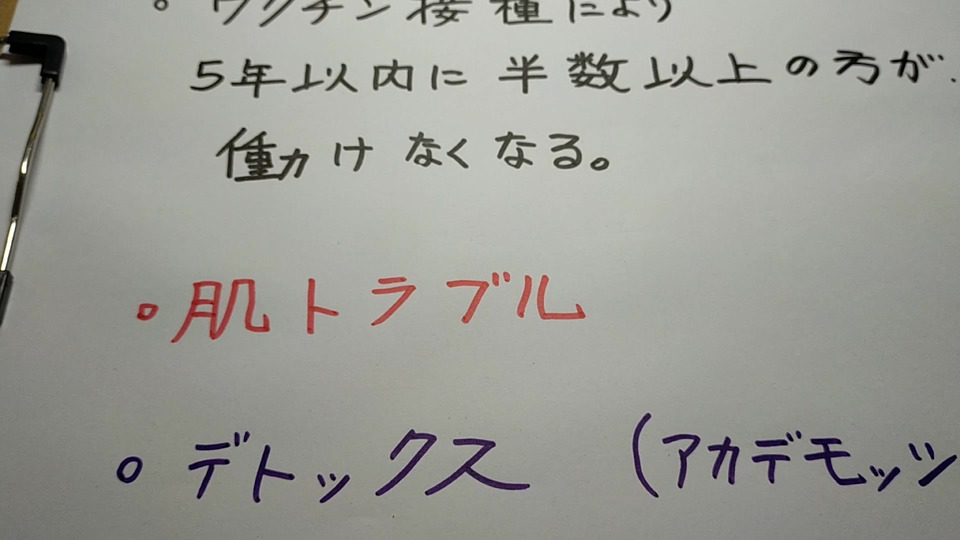 。ワクチン接種により
5年以内に半数以上の方が
働けなくなる。
。肌トラブル
。デトックス (アカデモッツ